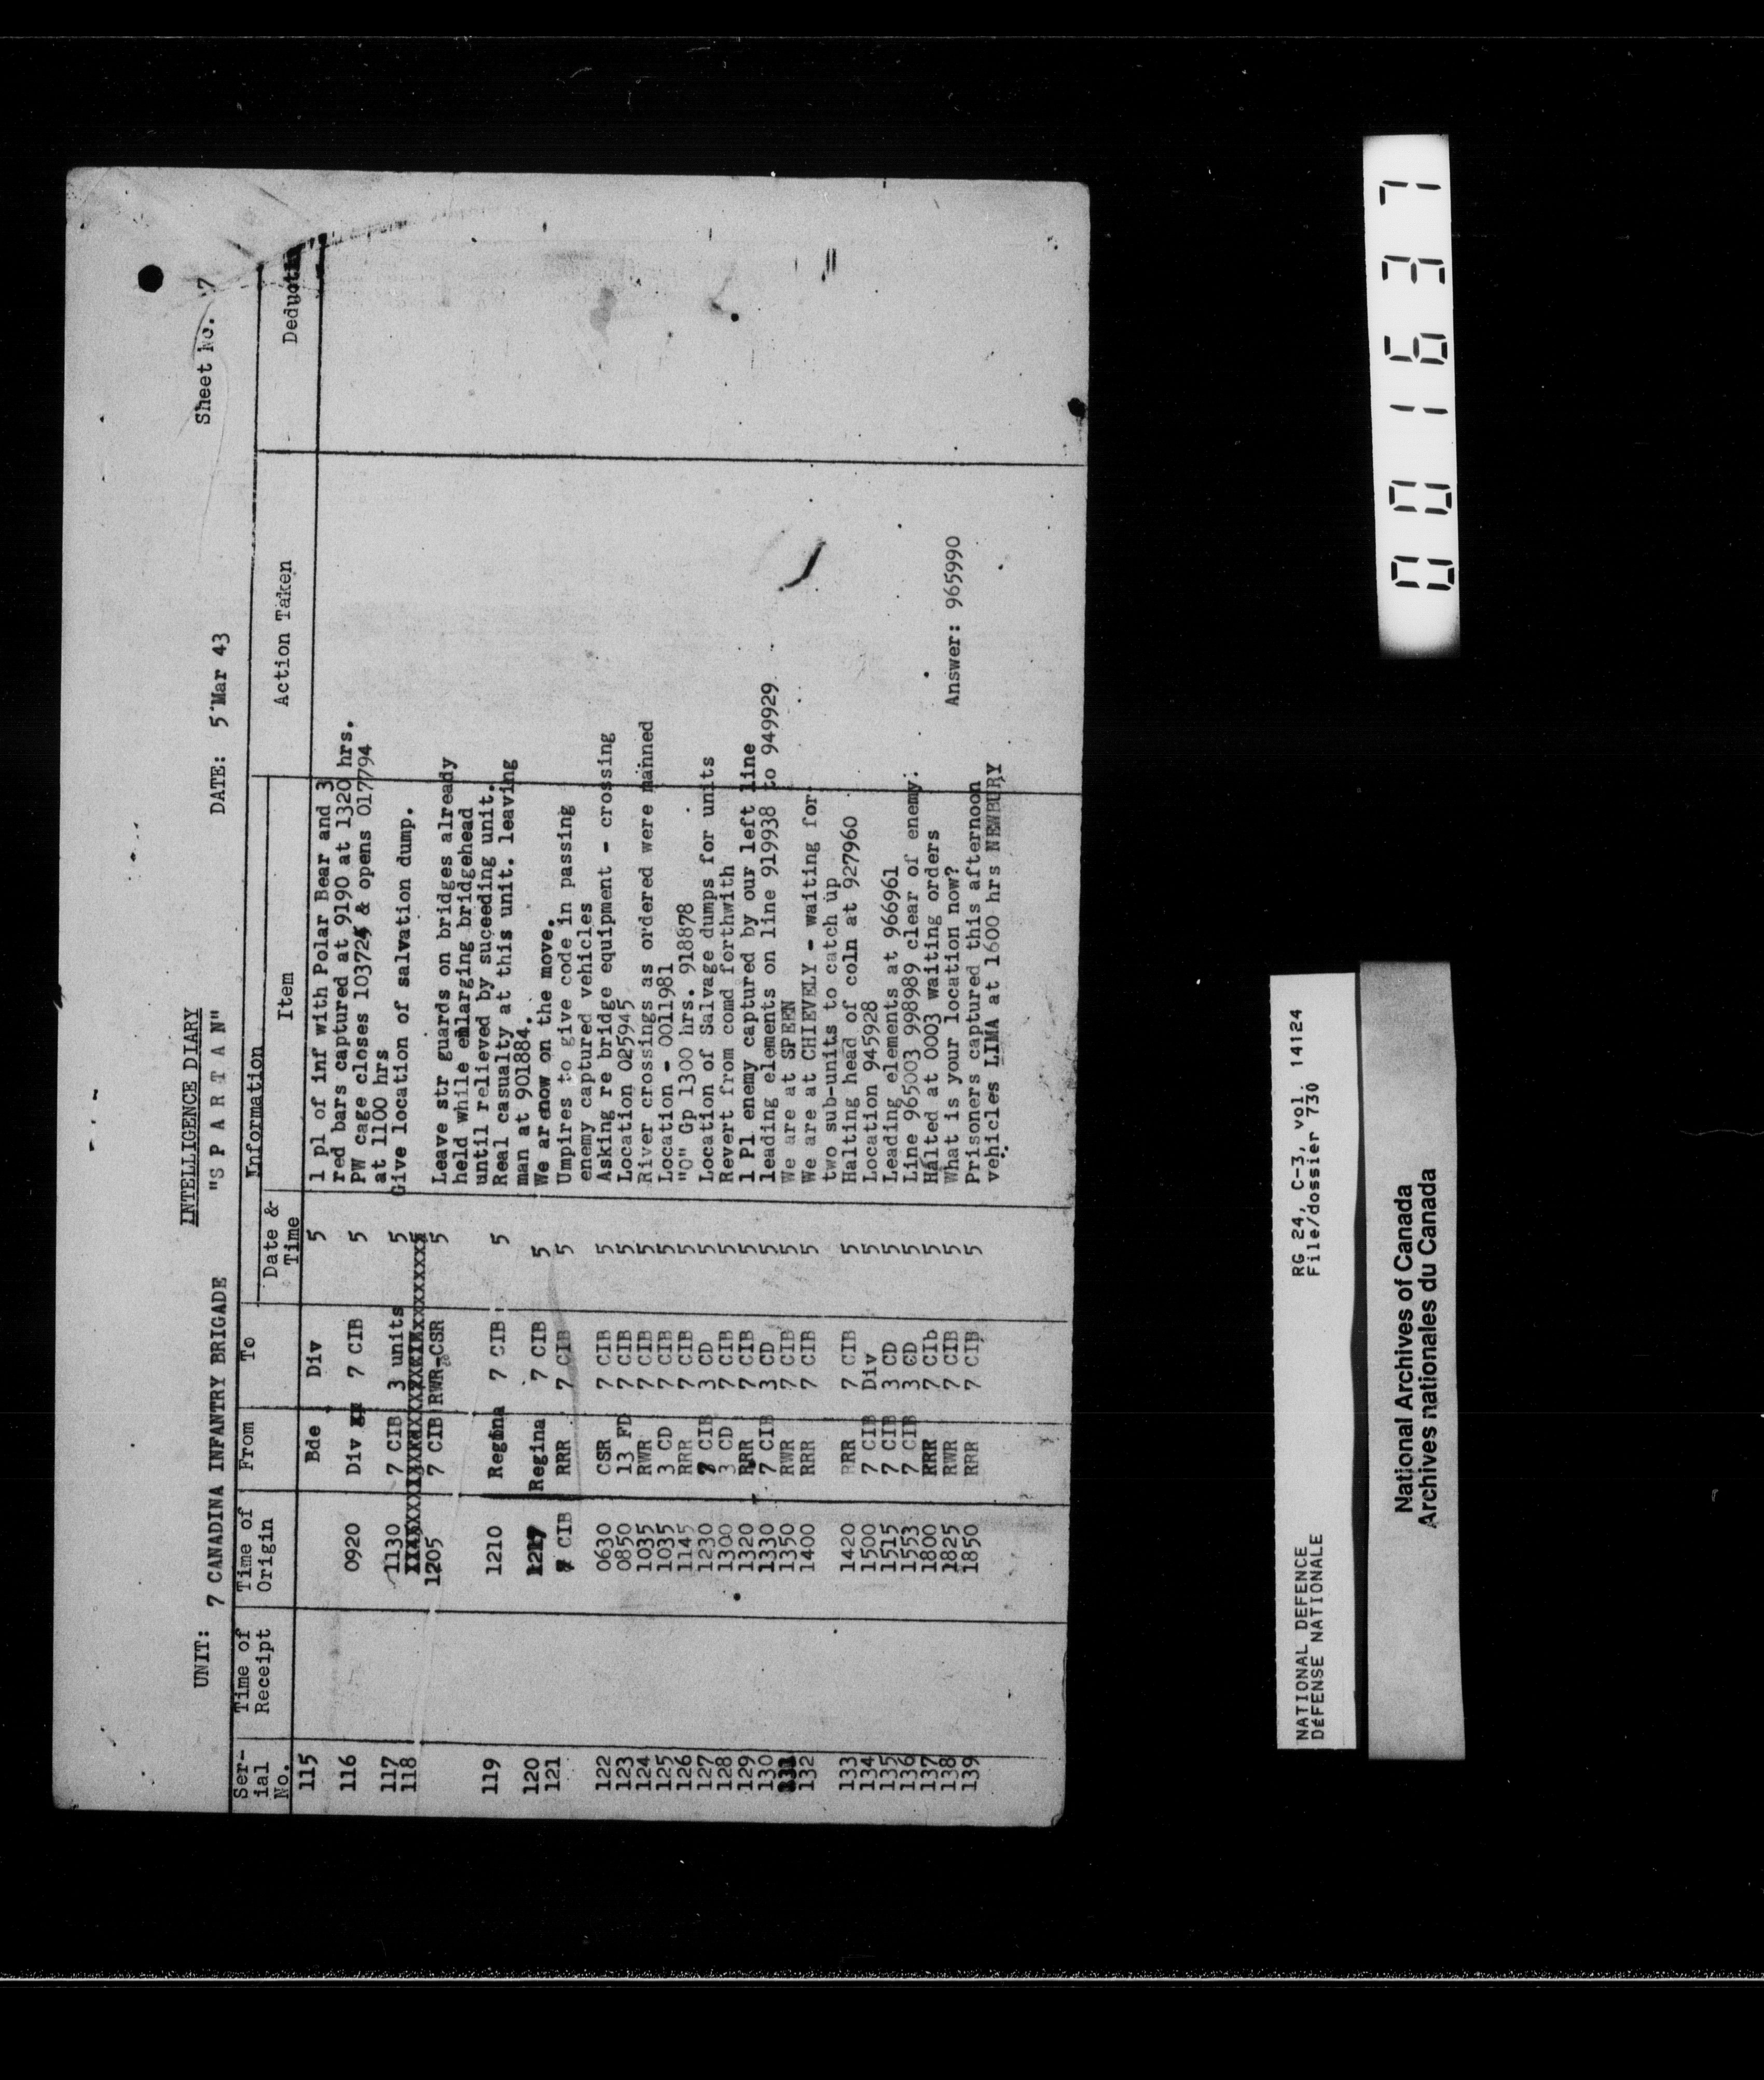 INTELLIGENCE DIARY
Sheet No. 7
UNIT: 7 CANADINA INFANTRY BRIGADE "S P A R T A N" DATE: 5 Mar 43
Ser-ial No. Time of Receipt Time of Origin From To Information Action Taken
Date & Time Item
115 Bde Div 5 1 pl of inf with Polar Bear and 3
red bars captured at 9190 at 1320 hrs.
116 0920 Div 7 CIB 5 PW cage closes 103725 & opens 017794
at 1100 hrs
117 1130 7 CIB 3 units 5 Give location of salvation dump.
118
1205 7 CIB RWR-CSR 5 Leave str guards on bridges already
held while enlarging bridgehead
until relieved by suceeding unit.
119 1210 Regina 7 CIB 5 Real casualty at this unit. leaving
man at 901884.
120 1217 Regina 7 CIB 5 We are now on the move.
121 7 CIB RRR 7 CIB 5 Umpires to give code in passing
enemy captured vehicles
122 0630 CSR 7 CIB 5 Asking re bridge equipment - crossing
123 0850 13 FD 7 CIB 5 Location 025945
124 1035 RWR 7 CIB 5 River crossings as ordered were manned
125 1035 3 CD 7 CIB 5 Location - 0011981
126 1145 RRR 7 CIB 5 "O" Gp 1300 hrs. 918878
127 1230 7 CIB 3 CD 5 Location of Salvage dumps for units
128 1300 3 CD 7 CIB 5 Revert from comd forthwith
129 1320 RRR 7 CIB 5 1 Pl enemy captured by our left line
130 1330 7 CIB 3 CD 5 leading elements on line 919938 to 949929
131 1350 RWR 7 CIB 5 We are at SPEEN
132 1400 RRR 7 CIB 5 We are at CHIEVELY - waiting for
two sub-units to catch up
133 1420 RRR 7 CIB 5 Halting head of coln at 927960
134 1500 7 CIB Div 5 Location 945928
135 1515 7 CIB 3 CD 5 Leading elements at 966961
136 1553 7 CIB 3 CD 5 Line 965003 998989 clear of enemy.
137 1800 RRR 7 CIb 5 Halted at 0003 waiting orders
138 1825 RWR 7 CIB 5 What is your location now? Answer: 965990
139 1850 RRR 7 CIB 5 Prisoners captured this afternoon
vehicles LIMA at 1600 hrs NEWBURY
NATIONAL DEFENCE RG 24, C-3, vol. 14124
DÉFENSE NATIONALE File/dossier 730
National Archives of Canada
Archives nationales du Canada
001637